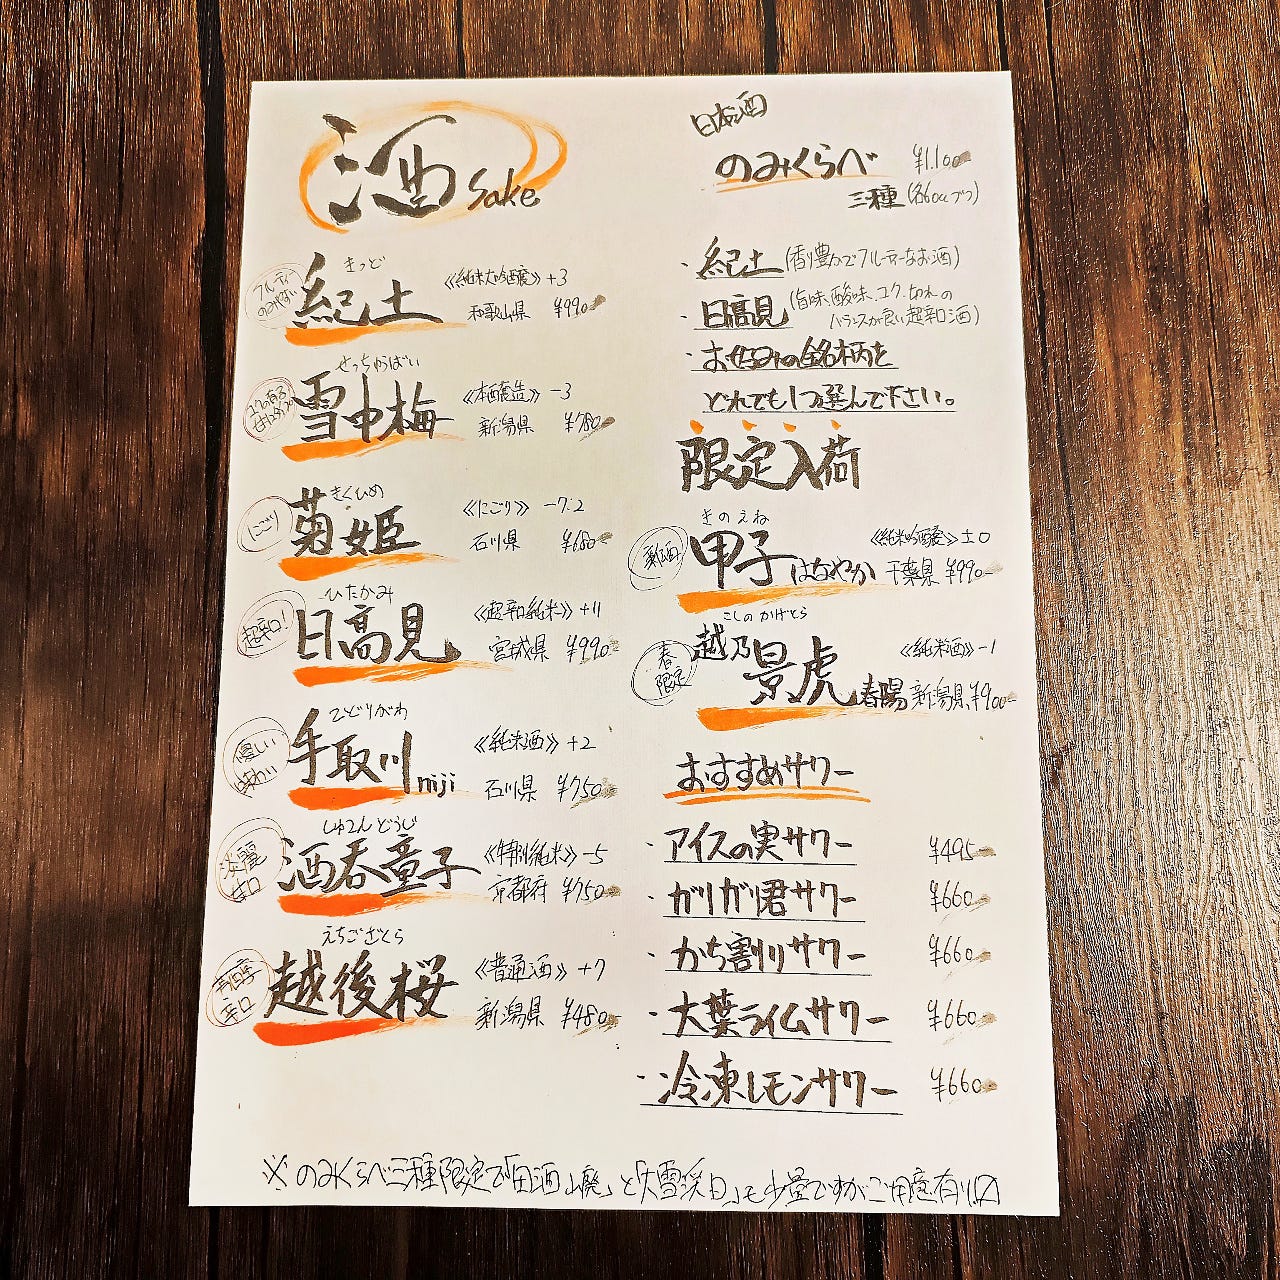 酒 Sake
フルーティー
のみやすい
きっど
紀土
《純米大吟醸》+3
和歌山県 ¥990-
コクの有る
せっちゅうばい
雪中梅
《本醸造》-3
新潟県 ¥780-
にごり
きくひめ
菊姫
《にごり》-7.2
石川県 ¥680-
超辛口!
ひたかみ
日高見
《超辛純米》+11
宮城県 ¥990-
優しい
味わい
てどりがわ
手取川niji
《純米酒》+2
石川県 ¥750-
淡麗
甘口
しゅてんどうじ
酒呑童子
《特別純米》-5
京都府 ¥750-
辛口
えちござくら
越後桜
《普通酒》+7
新潟県 ¥480-
日本酒
のみくらべ ¥1.100-
三種(各60ccづつ)
・紀土(香り豊かでフルーティーなお酒)
・日高見(旨味、酸味、コク、切れの
バランスが良い超辛口酒)
・お好みの銘柄を
どれでも1つ選んで下さい。
限定入荷
きのえね
甲子はなやか
《純米吟醸》±0
千葉県 ¥990-
春
限定
こしのかげとら
越乃景虎 春陽
《純米酒》-1
新潟県 ¥900-
おすすめサワー
・アイスの実サワー ¥495-
・ガリガリ君サワー ¥660-
・かち割りサワー ¥660-
・大葉ライムサワー ¥660-
・冷凍レモンサワー ¥660-
※のみくらべ三種限定で「田酒 山廃」と「大雪渓 」も少量ですがご用意有り